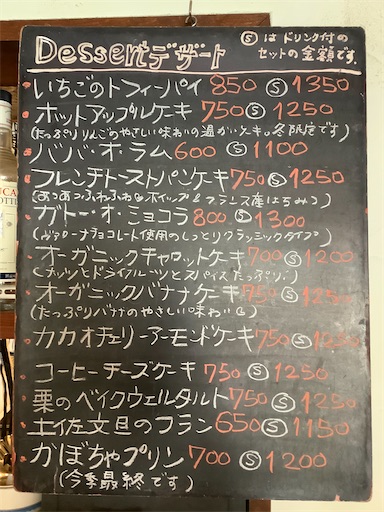 Dessert デザート
Ⓢ はドリンク付の
セットの金額です。
いちごのトフィーパイ 850 Ⓢ 1350
ホットアップルケーキ 750 Ⓢ 1250
(たっぷりりんごのやさしい味わいの温かいケーキ。冬限定です)
ババ・オ・ラム 600 Ⓢ 1100
フレンチトーストパンケーキ 750 Ⓢ 1250
(あつあつふわふわ ホイップ& フランス産はちみつ)
ガトー・オ・ショコラ 800 Ⓢ 1300
(ヴァローナチョコレート使用のしっとりクラシックタイプ)
オーガニックキャロットケーキ 700 Ⓢ 1200
(ナッツとドライフルーツとスパイスたっぷり)
オーガニックバナナケーキ 750 Ⓢ 1250
(たっぷりバナナのやさしい味わい)
カカオチェリーアーモンドケーキ 750 Ⓢ 1250
コーヒーチーズケーキ 750 Ⓢ 1250
栗のベイクウェルタルト 750 Ⓢ 1250
土佐文旦のフラン 650 Ⓢ 1150
かぼちゃプリン 700 Ⓢ 1200
(今季最終です)